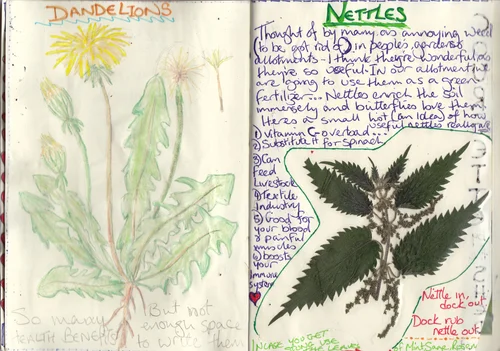 DANDELIONS
So many HEALTH BENEFITS
But not enough space to write them
NETTLES
Thought of by many as annoying weed
to be got rid of in people's gardens
allotments - I think they're wonderful as
they're so useful. In our allotment we
are going to use them as a green
fertilizer... Nettles enrich the soil
immensely and butterflies love them.
Heres a small list (an idea) of how
useful nettles really are
1) Vitamin C-overload...
2) Substitute it for Spinach
3) Can
feed
livestock
4) Textile
industry
5) Good for
your blood
& painful
muscles
6) boosts
your
immune
system
Nettle in,
dock out.
Dock rub
nettle out.
IN CASE YOU GET
STUNG USE
LEAVES